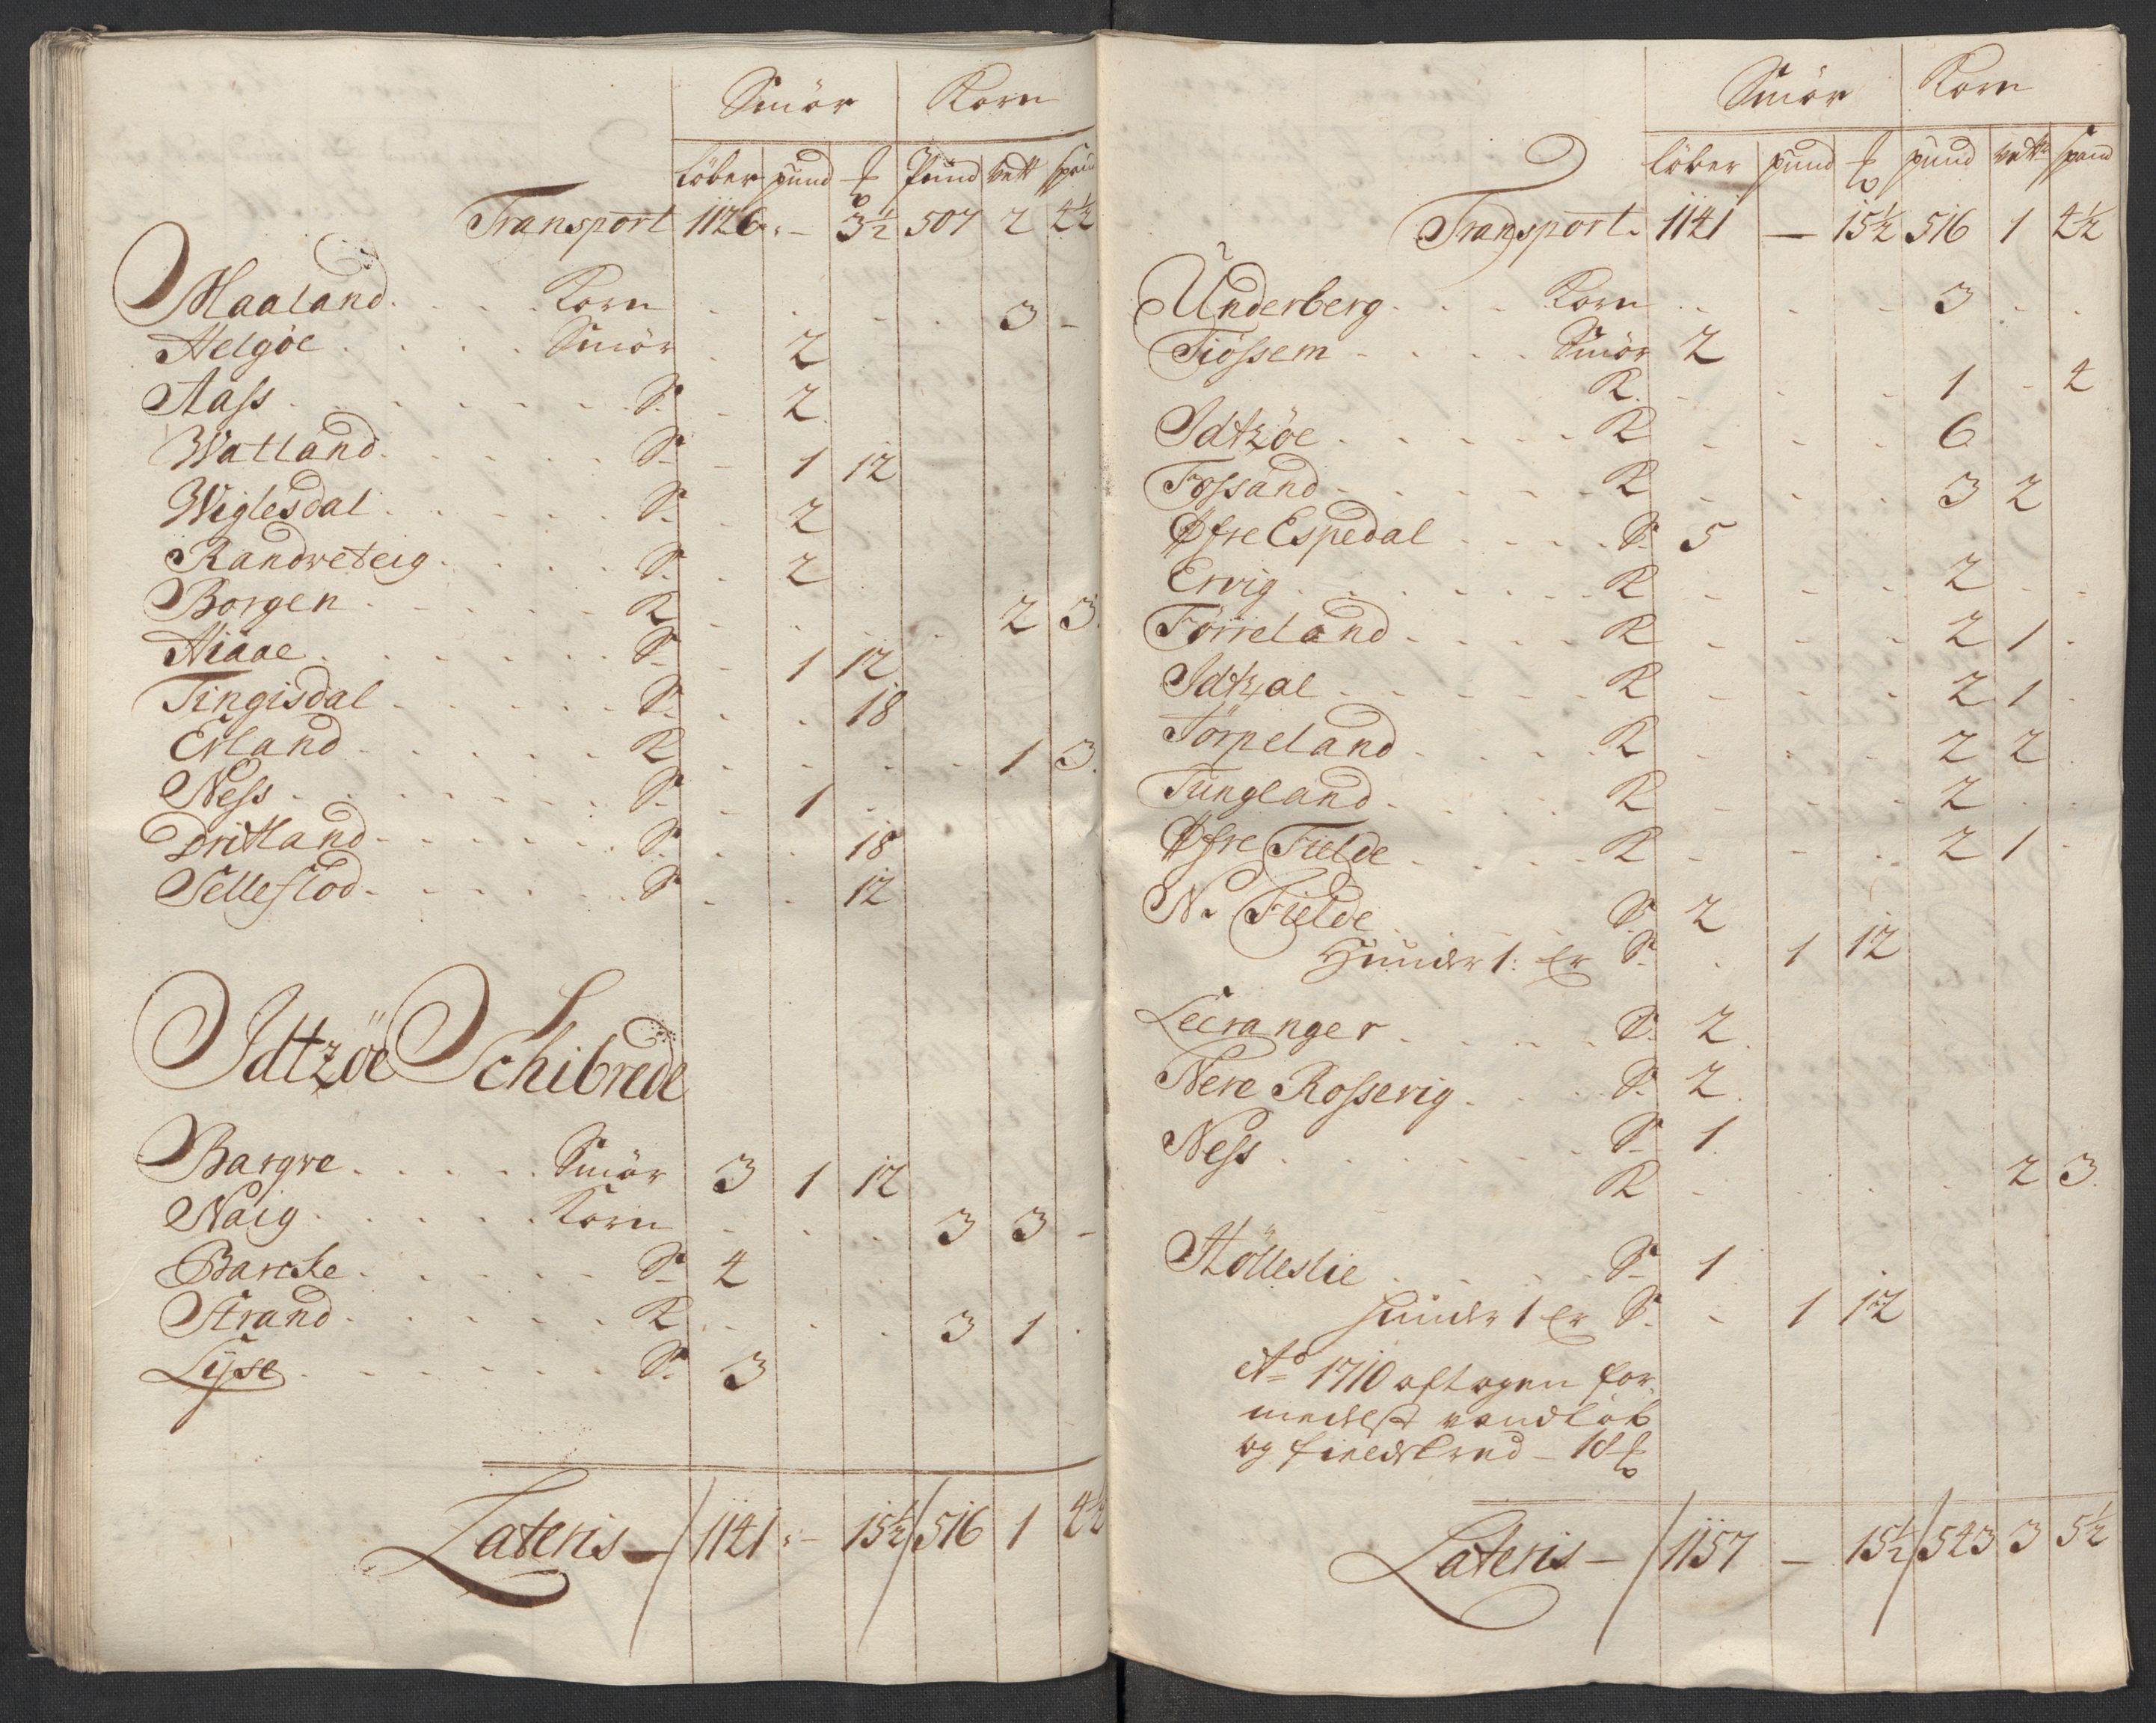 Smör Korn
löber pund ℔ Pund Vett spand
Transport 1126 : - 3½ 507 2 4½
Maaland . . . . Korn . . . . 3 -
Helgöe . . . . Smör . 2
Aass . . . . S. - . 2
Watland . . . . S. - 1 12
Wiglesdal . . . . S. . 2
Randveteig . . . . S. . 2
Borgen . . . . K . . . . 2 3.
Hiaae . . . . S. - 1 12
Tingisdal . . . . S. . . 18
Erland . . . . K . . . . 1 3.
Ness . . . . S. - 1 .
Dritland . . . . S. . . 18
Sellestod . . . . S . . 12
Idtzöe Schibrede
Bargve . . . . Smör 3 1 12
Naig . . . . Korn . . . 3 3 -
Barcke . . . . S. 4
Strand . . . . K . . . 3 1 .
Lÿse . . . . S. 3
Lateris - 1141 : - 15½ 516 1 4½
Smör Korn
löber pund ℔ pund vett spand
Transport. 1141 - 15½ 516 1 4½
Underberg . . . Korn . . . 3 . .
Tiössem . . . . Smör 2
K. . . . 1 - 4
Idtzöe . . . . K . . . 6
Fossand . . . . K . . . 3 2
Øfre Espedal . . . . S. 5
Ervig . . . . K . . . 2 . .
Förreland . . . . K . . . 2 1 .
Idtzal . . . . K . . . 2 1 .
Törpeland . . . . K . . . 2 2 .
Tungland . . . . K . . . 2 . .
Øfre Fielde . . . . K . . . 2 1 .
N. Fielde . S. 2
Hunder 1: er S. . 1 12
Leeranger . . . . S. 2.
Nere Rosserig . . . . S. 2.
Ness . . . . S. 1.
K . . . . 2 3.
Hölleslie . . . . S. 1
hunder 1 er S. - 1 12
Ao 1710 aftagen for-
medelst vandlöb
og fieldskred - 18 ℔
Lateris - 1157 - 15½ 543 3 5½